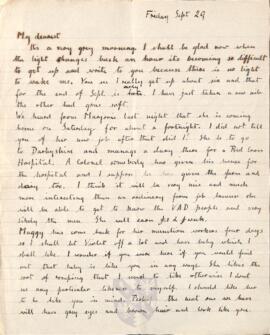 Friday Sept 29
My dearest
It's a very grey morning. I shall be glad now when
the light changes back an hour its becoming so difficult
to get up and write to you because there is no light
to wake me. You see I really get up about six and that
for the end of Sept. is I have just taken a new nib
the other had gone soft.
We heard from Marjorie last night that she is coming
home on Saturday for about a fortnight. I did not tell
you of her new job after that did I. She is to go
to Derbyshire and manage a dairy there for a Red Cross
Hospital. A Colonel somebody has given his house for
the hospital and I suppose he has given the farm and
dairy too. I think it will be very nice and much
more interesting than an ordinary farm job because she
will be able to get to know the VAD people and very
likely the men. She will earn £1 a week.
Maggy has come back for her munition workers four days
so I shall let Violet off a lot and have baby which I
shall like. I wonder if you were here if you would find
out that baby is like you in any way. She likes the
sort of romping that I used to like otherwise I dont
see any particular likeness to myself. I should like her
to be like you in mind. Perhaps the next one we have
will have grey eyes and brown hair and look like you.